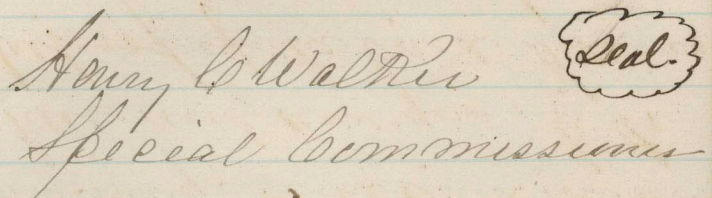 Henry C Walker Seal.
Special Commissioner